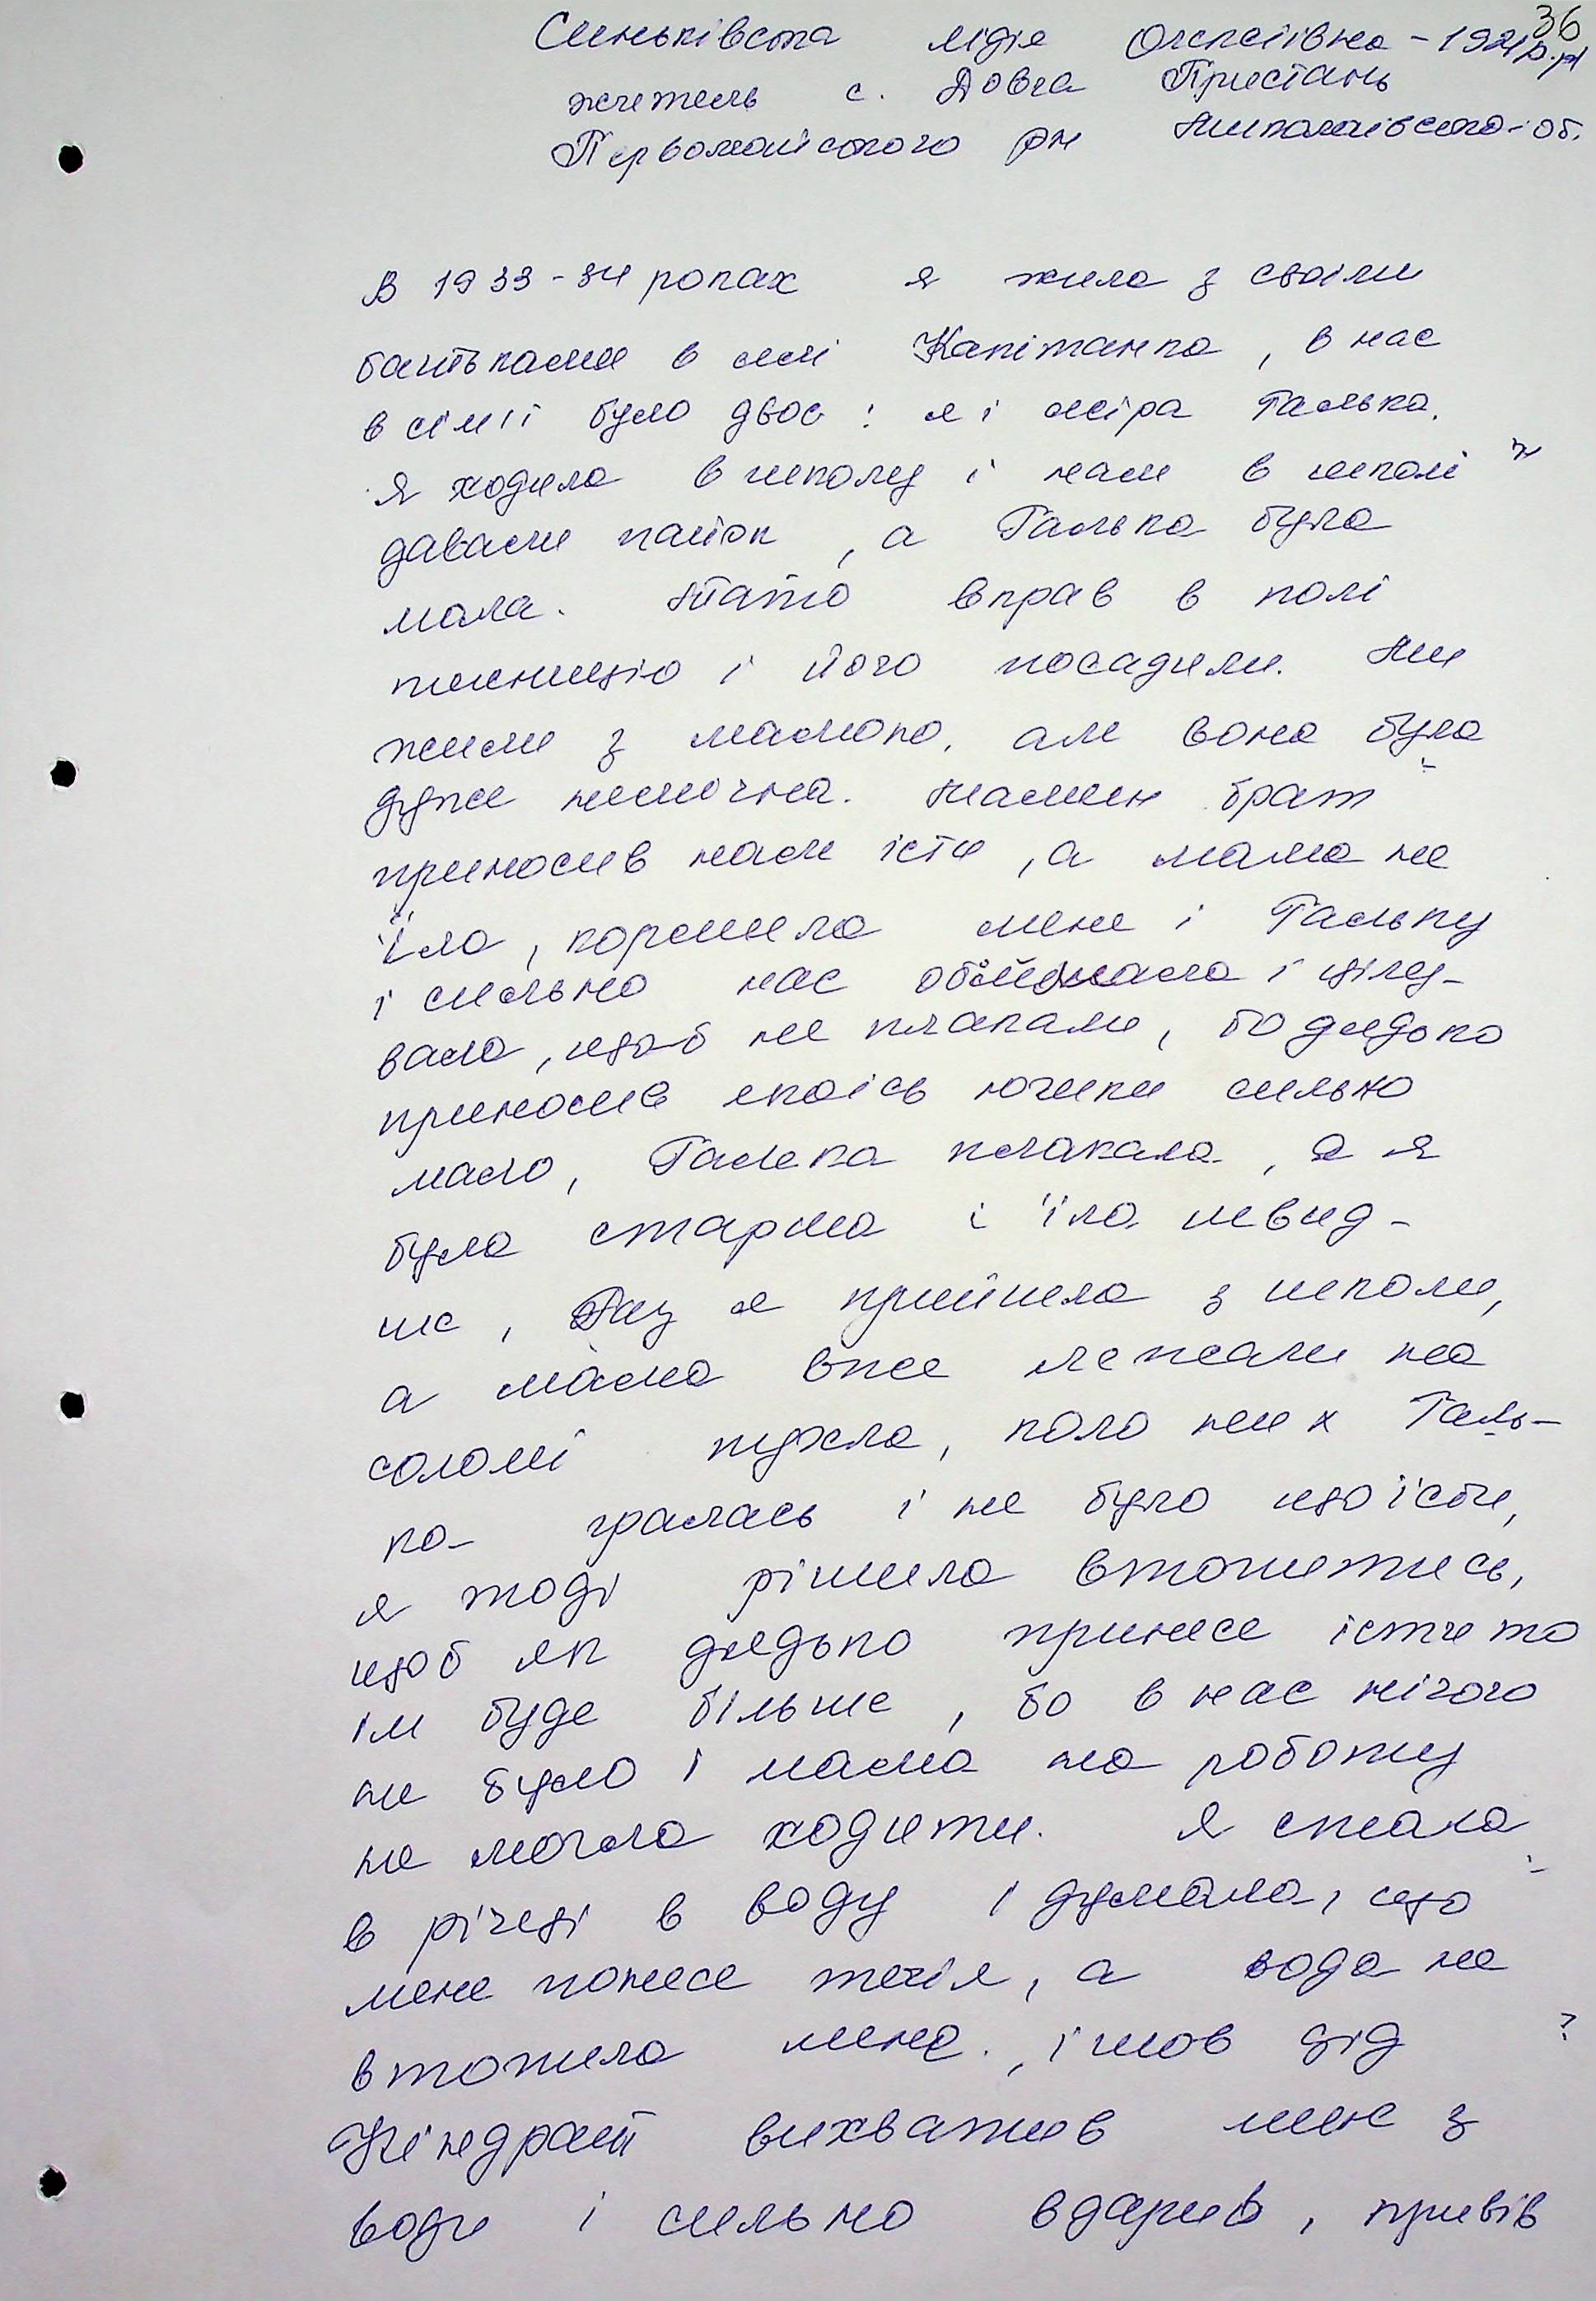 36
Синьківська Лідія Олексіївна - 1921р.н
житель с. Довга Пристань
Первомайського рн Миколаївсько-об.
В 1933-34 роках я жила з своїми
батьками в селі Капітанка, в нас
в сімії було двоє: я і сестра Галька.
Я ходила в школу і нам в школі
давали пайок, а Галька була
мала. Тато вкрав в полі
пшеницю і його посадили. Ми
жили з мамою, але вона була
дуже немочна. Мамин брат
приносив нам їсти, а мама не
їла, кормила мене і Гальку
і сильно нас обіймала і цілу-
вала, щоб не плакали, бо дядько
приносив якоїсь юшки сильно
мало, Галька плакала, а я
була старша і їла швид-
ше, Раз я прийшла з школи,
а мама вже лежали на
соломі пухла, коло них Галь-
ка- гралась і не було що їсти,
я тоді рішила втопитись,
щоб як дядько принесе їсти то
їм буде більше, бо в нас нічого
не було і мама на роботу
не могла ходити. Я стала
в річці в воду і думала, що
мене понесе течія, а вода не
втопила мене., ішов дід ?
Кіндрат вихватив мене з
води і сильно вдарив, привів